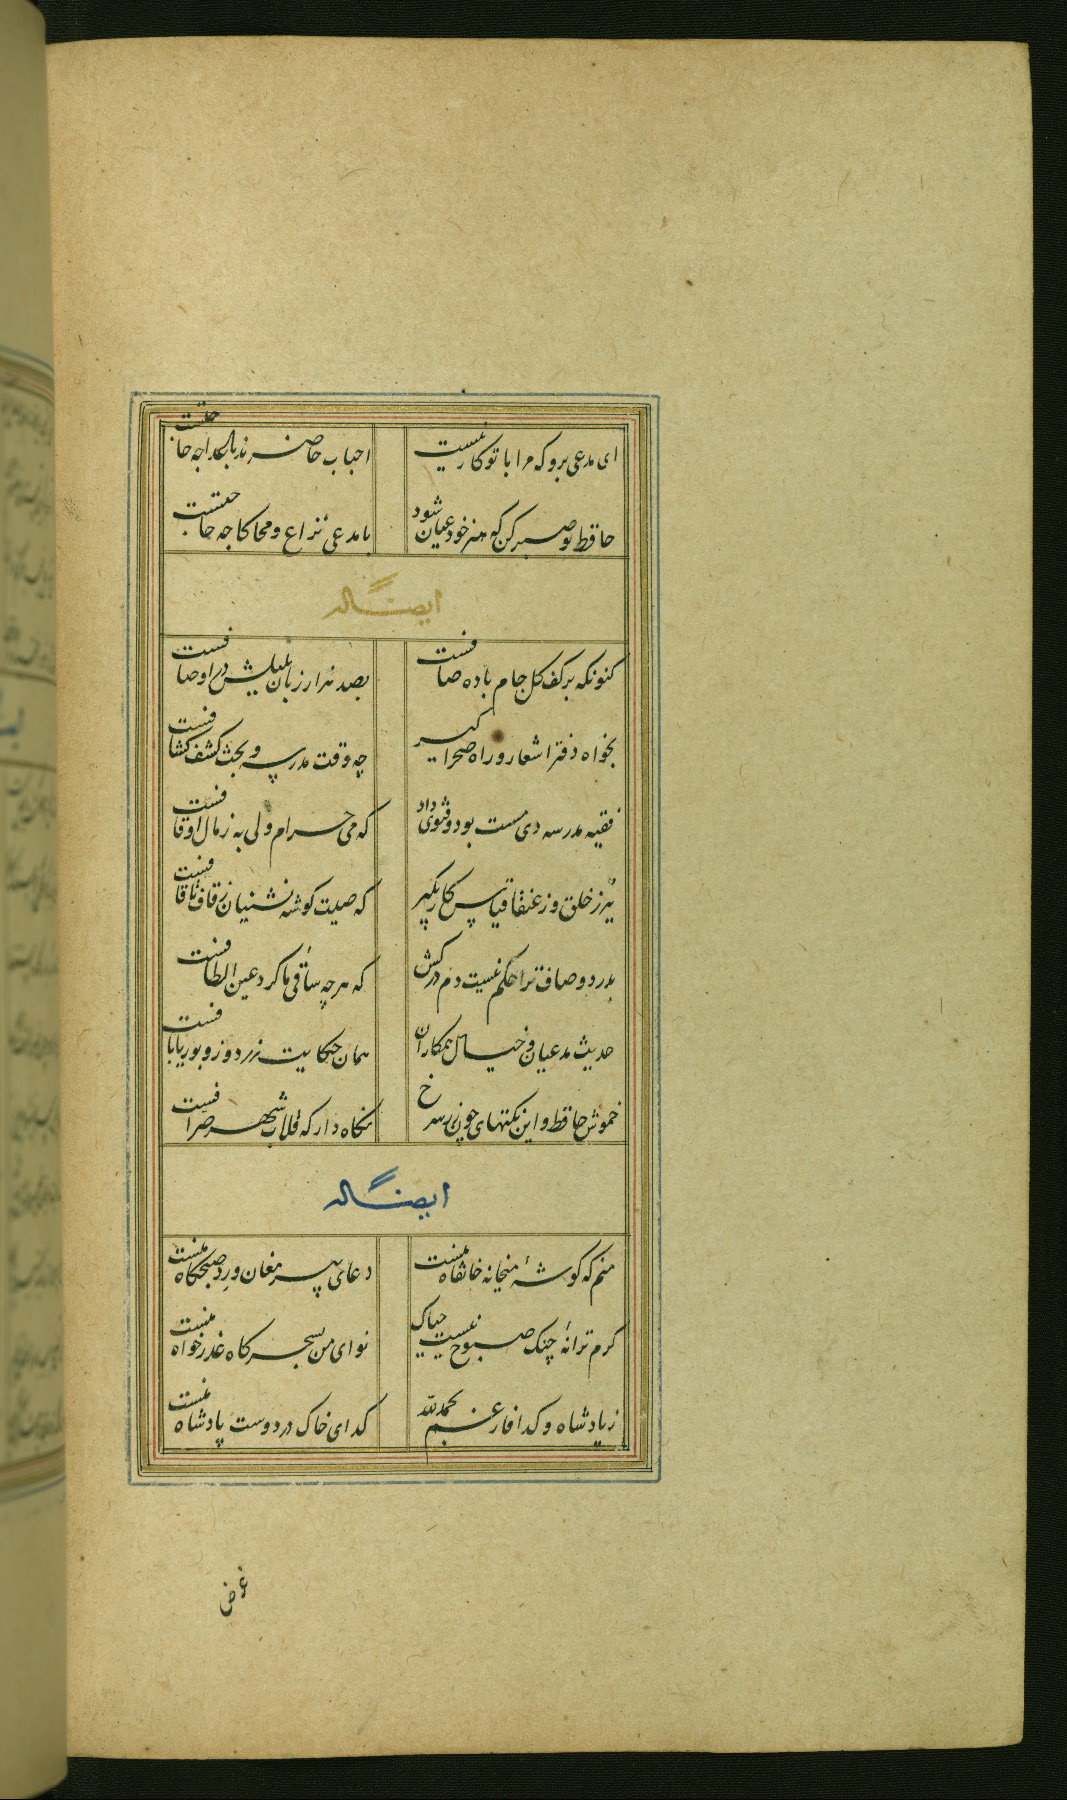 ای مدعی برو که مرا با تو کار نیست
احباب حاضرند باعدا چه حاجتست
حافظ تو صبر کن که هنر خود عیان شود
با مدعی نزاع و محاکا چه حاجتست
ایضا له
کنونکه بر کف کل جام باده صافست
بصد هزار زبان بلبلش در اوصافست
بخواه دفتر اشعار و راه صحرا کیر
چه وقت مدرسه و بحث کشف کشافست
فقیه مدرسه دی مست بود و فتوی داد
که می حرام ولی به ز مال اوقافست
ببر ز خلق و ز عنقا قیاس کار بکیر
که صیت کوشه نشینان ز قاف تا قافست
بدرد و صاف ترا حکم نیست دم درکش
که هر چه ساقی ما کرد عین الطافست
حدیث مدعیان و خیال همکاران
همان حکایت زردوز و بوریا بافست
خموش حافظ و این نکتهای چون زر سرخ
نکاه دار که قلاب شهر صرافست
ایضا له
منم که کوشهٔ میخانه خانقاه منست
دعای پیر مغان ورد صبحکاه منست
کرم ترانهٔ چنک صبوح نیست چه باک
نوای من بسحرکاه عذر خواه منست
ز پادشاه و کدا فارغم بحمدالله
کدای خاک در دوست پادشاه منست
غرض